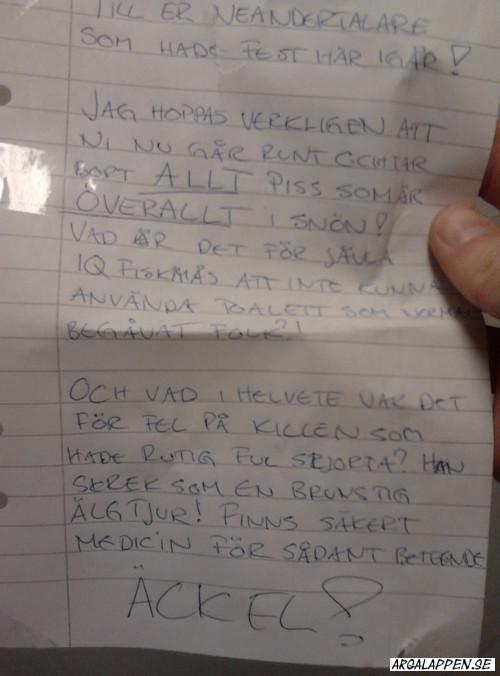 TILL ER NEANDERTALARE
SOM HADE FEST HÄR IGÅR!
JAG HOPPAS VERKLIGEN ATT
NI NU GÅR RUNT OCH TAR
BORT ALLT PISS SOM ÄR
ÖVERALLT I SNÖN!
VAD ÄR DET FÖR JÄVLA
IQ FISKMÅS ATT INTE KUNNA
ANVÄNDA TOALETT SOM NORMALT
BEGÅVAT FOLK?!
OCH VAD I HELVETE VAR DET
FÖR FEL PÅ KILLEN SOM
HADE RUTIG FUL SKJORTA? HAN
SKREK SOM EN BRUNSTIG
ÄLGTJUR! FINNS SÄKERT
MEDICIN FÖR SÅDANT BETEENDE
ÄCKEL!
ARGALAPPEN.SE